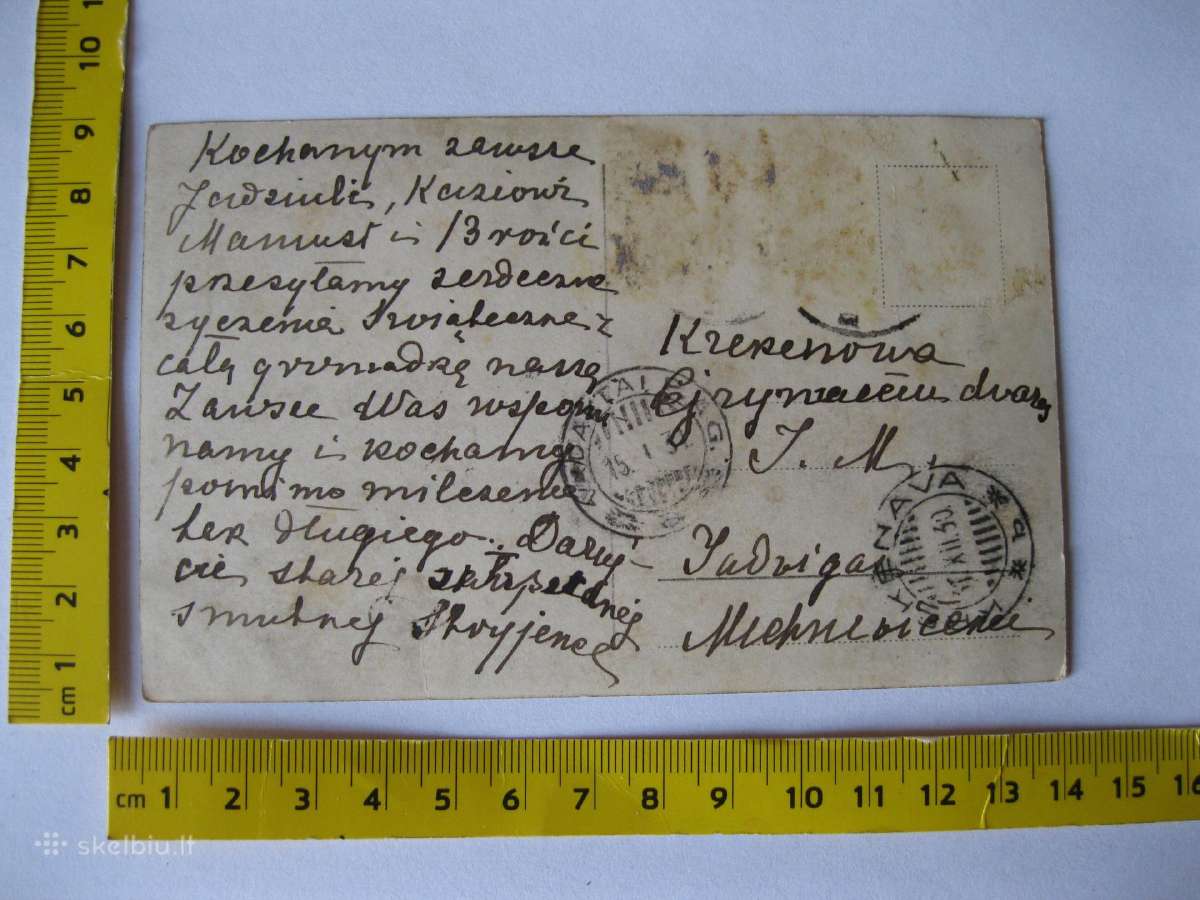 Kochanym zawsze
Jadziuli, Kaziowi
Mamusi i 13 rości
przesyłamy serdeczne
życzenia Świąteczne
całą gromadką naszą
Zawsze Was wspomi
namy i kochamy
pomimo milczenia
tak długiego. Daruj
cie starej
smutnej Stryjence
Krekenowa
dvaras
J. M.
Jadviga
Michniewiceni
15 I 3
KRENAVA
XII 30
cm 1 2 3 4 5 6 7 8 9 10
cm 1 2 3 4 5 6 7 8 9 10 11 12 13 14 15 16
skelbiu.lt